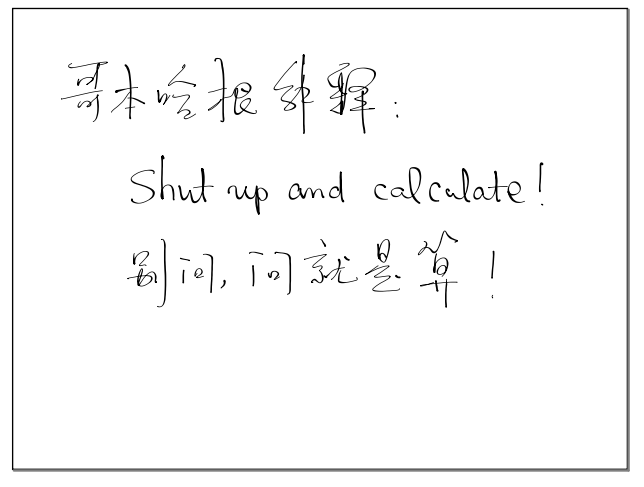 哥本哈根解释:
Shut up and calculate!
别问,问就是算!